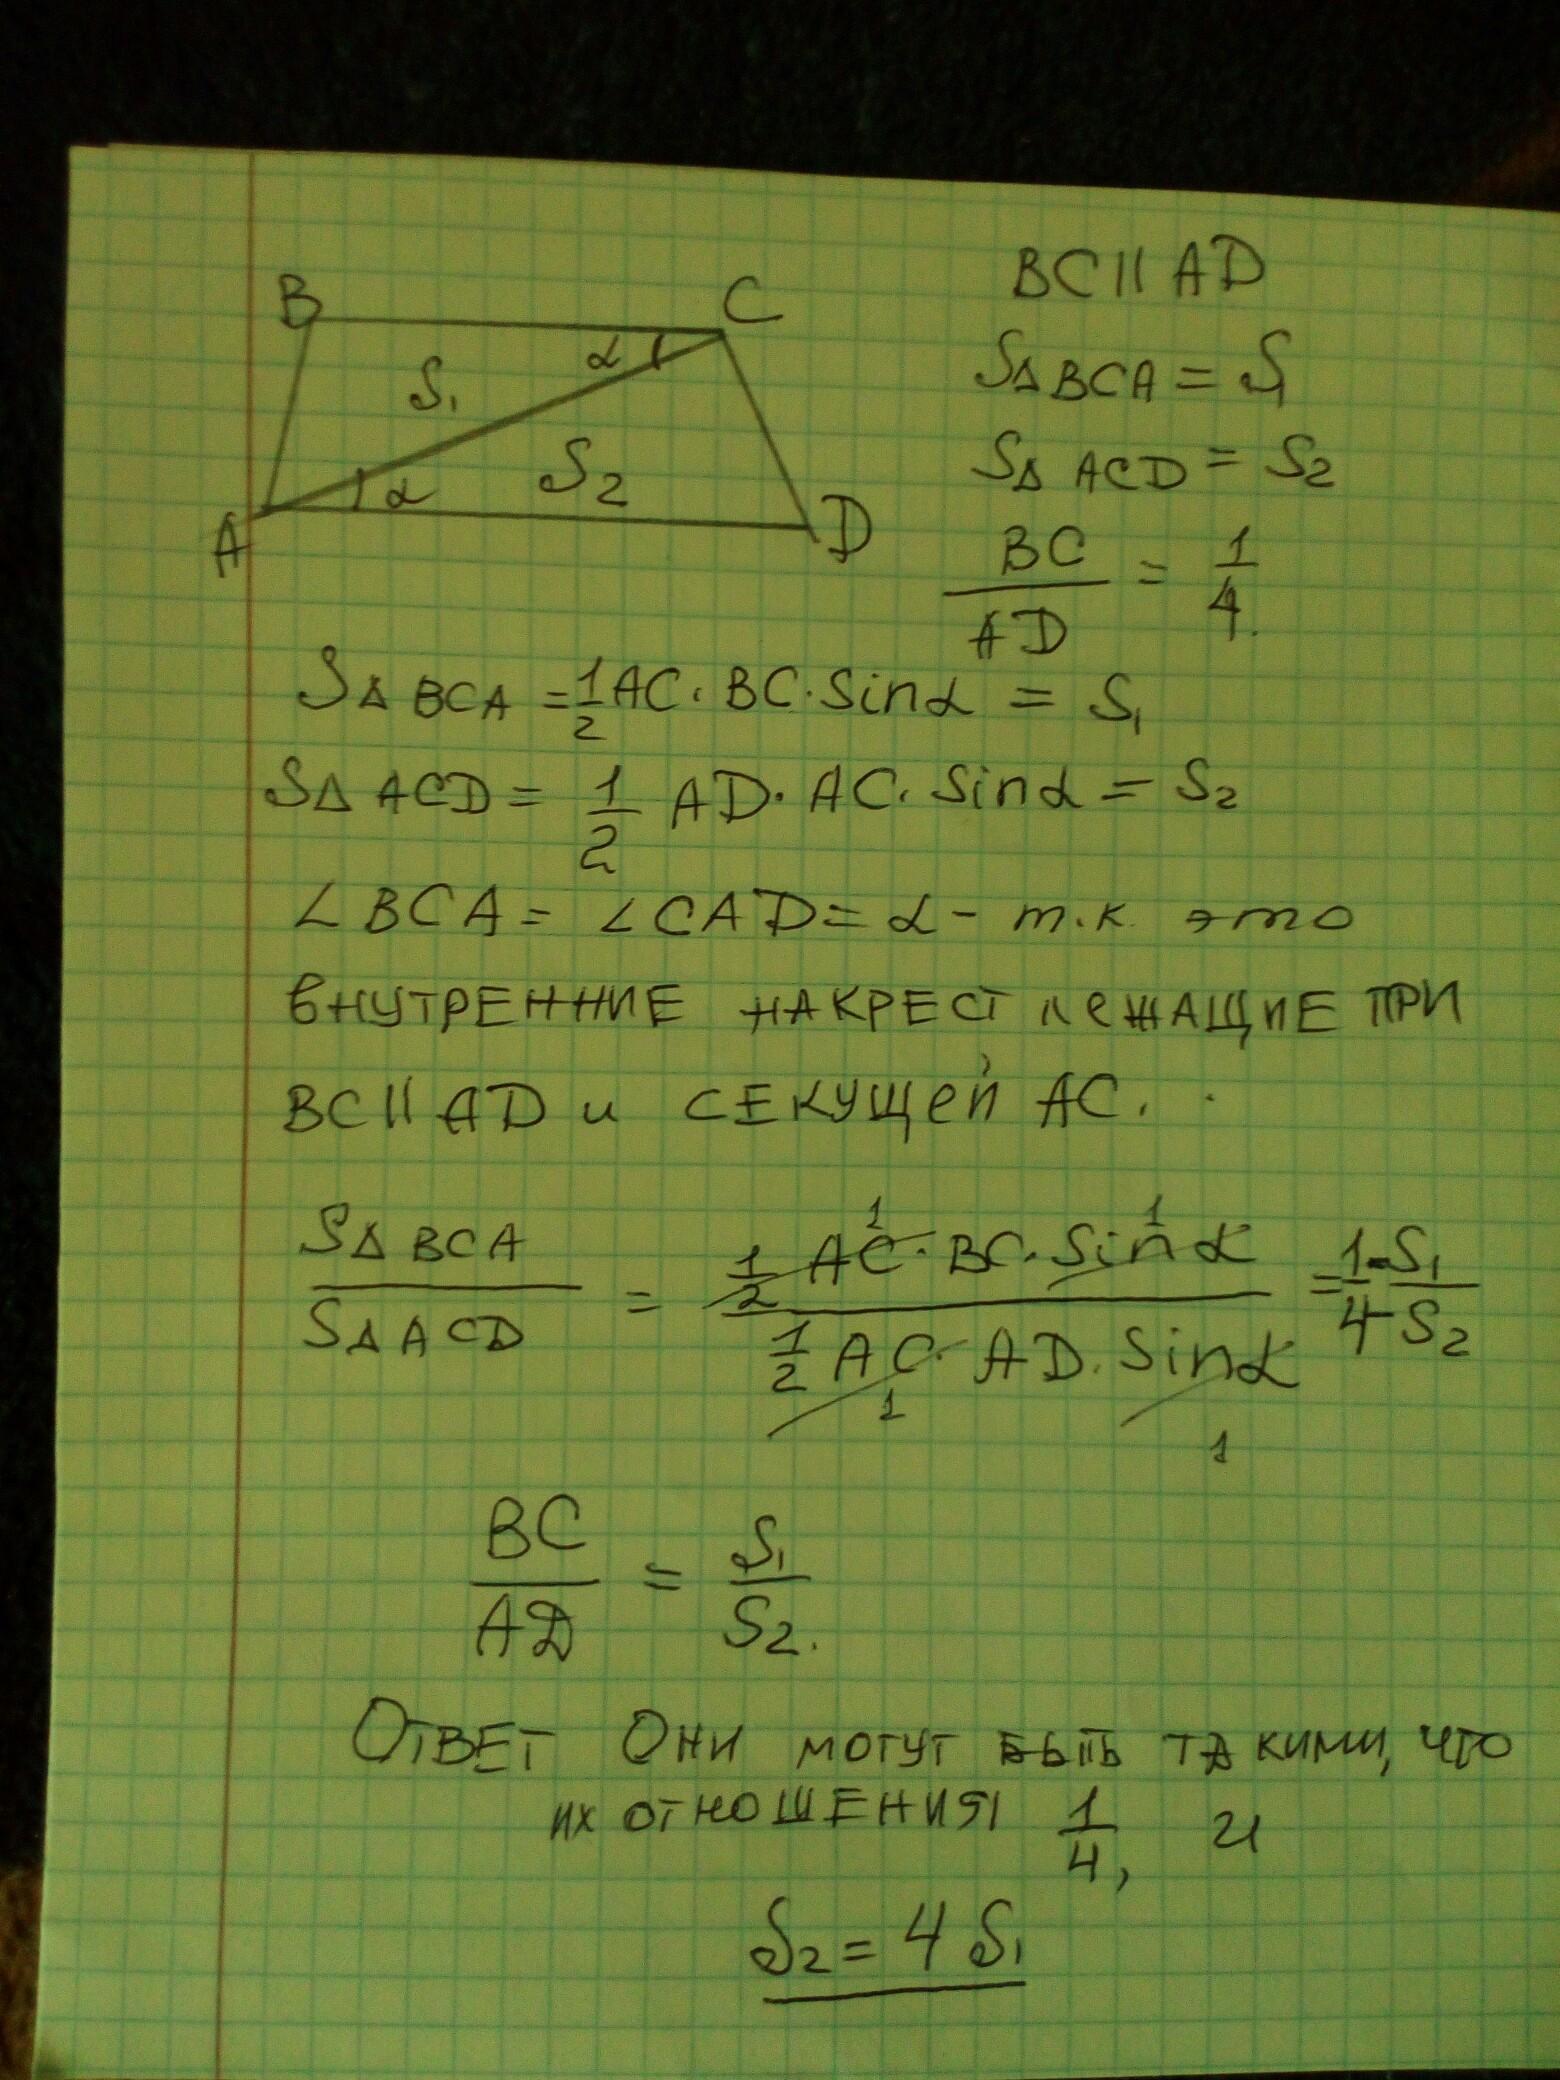 B C BC || AD
S₁ α S△BCA = S₁
α S₂ S△ACD = S₂
A D BC/AD = 1/4.
S△BCA = 1/2 AC · BC · Sinα = S₁
S△ACD = 1/2 AD · AC · Sinα = S₂
∠BCA = ∠CAD = α - т.к. это
внутренние накрест лежащие при
BC || AD и секущей AC.
S△BCA/S△ACD = (1/2 AC · BC · Sinα)/(1/2 AC · AD · Sinα) = 1/4 = S₁/S₂
1 1
1 1
BC/AD = S₁/S₂.
Ответ Они могут быть такими, что
их отношения 1/4, и
S₂ = 4 S₁